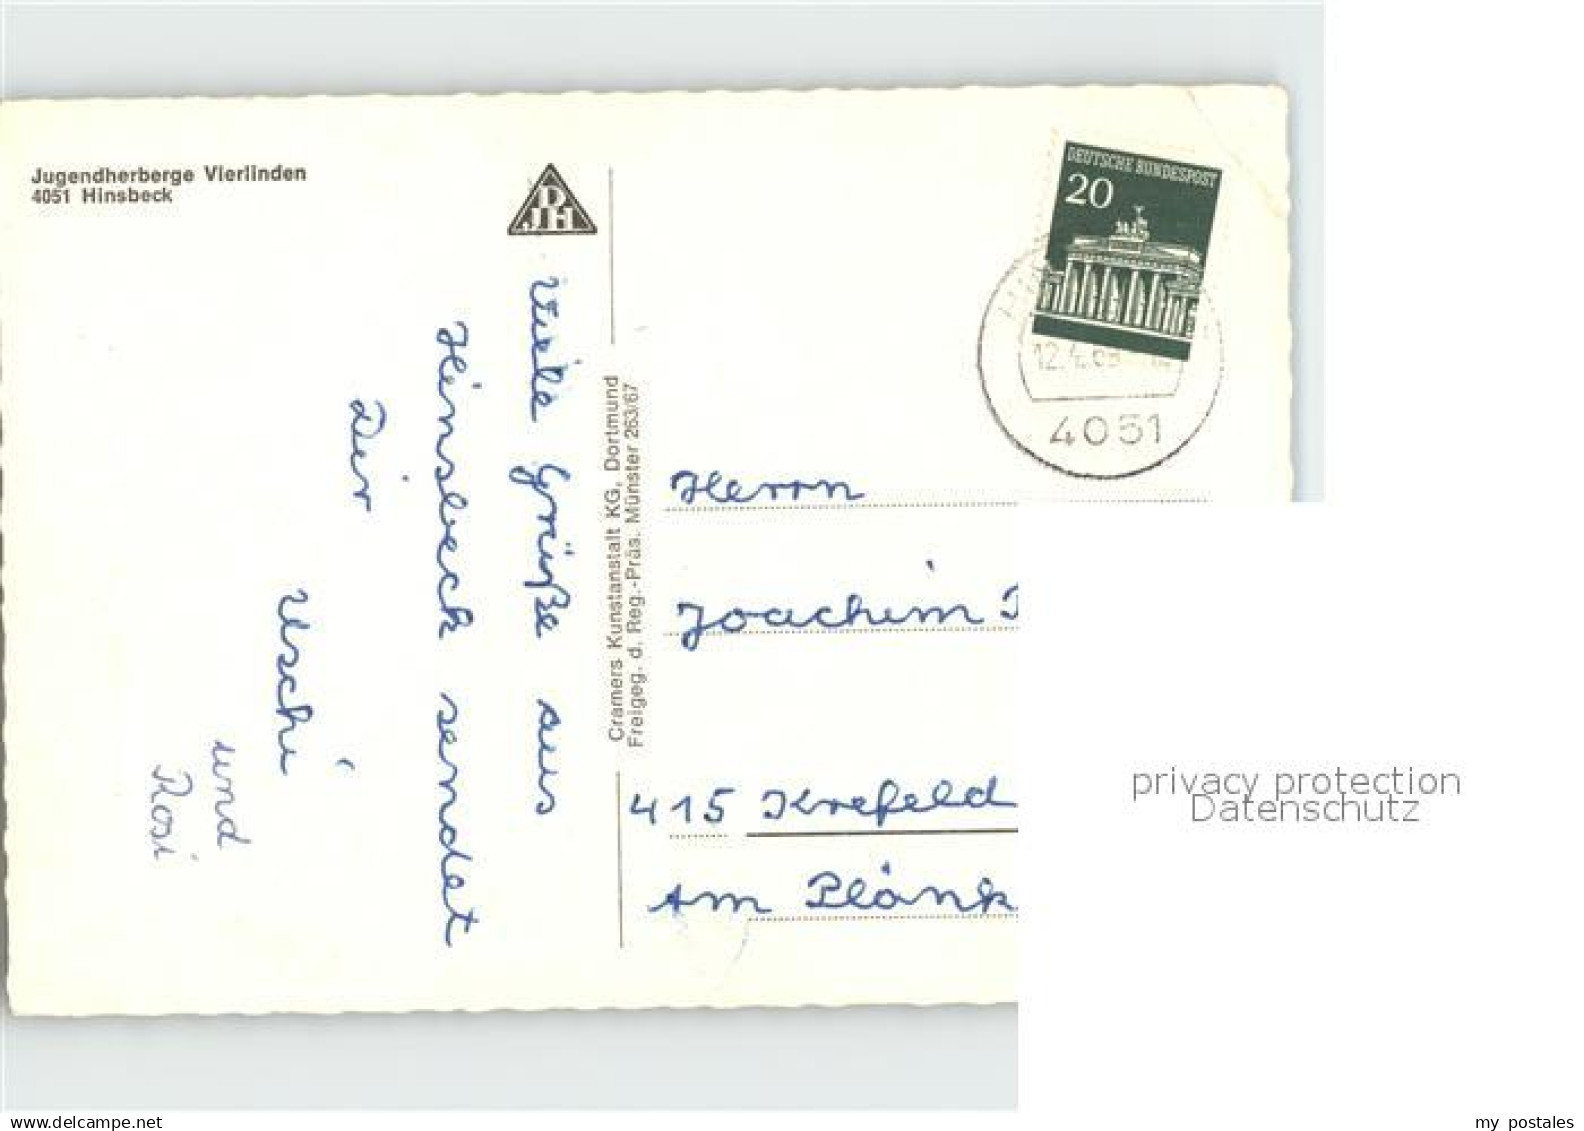 Jugendherberge Vierlinden
4051 Hinsbeck
DJH
Viele Grüße aus
Hinsbeck sendet
Dir
Uschi
und
Rosi
Cramers Kunstanstalt KG, Dortmund
Freigeg. d. Reg.-Präs. Münster 263/67
DEUTSCHE BUNDESPOST
20
12.4.
4051
Herrn
Joachim
415 Krefeld
Am Plänk
privacy protection
Datenschutz
delcampe.net
my postales